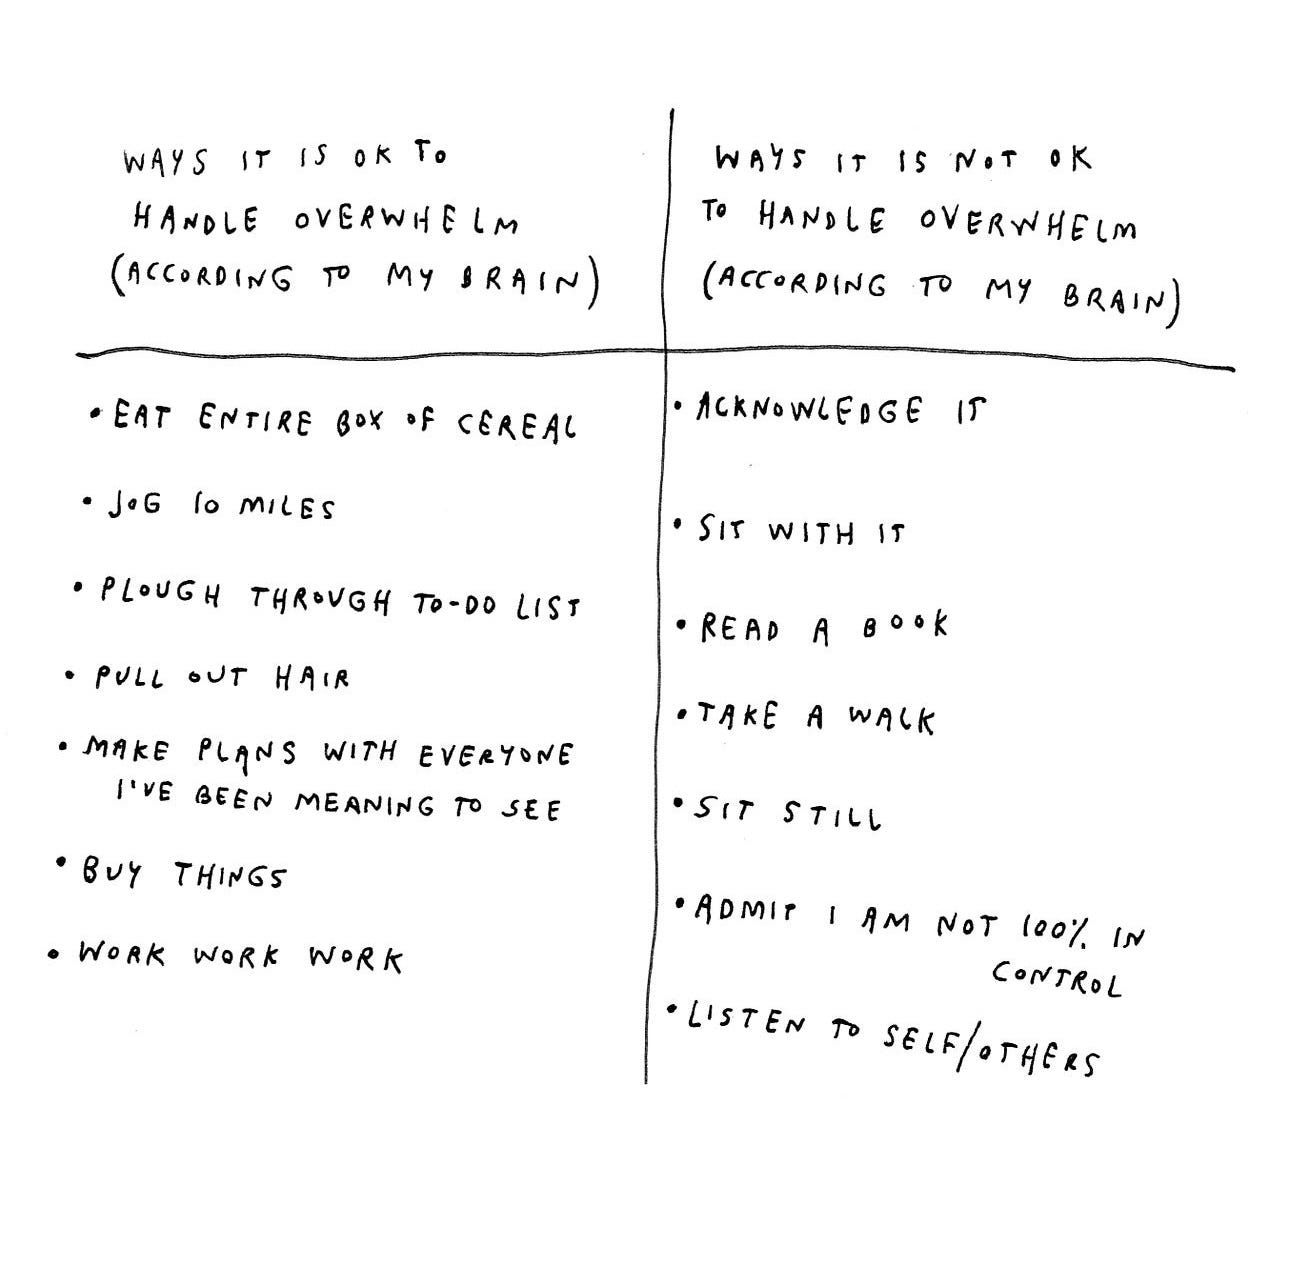 WAYS IT IS OK TO
HANDLE OVERWHELM
(ACCORDING TO MY BRAIN)
• EAT ENTIRE BOX OF CEREAL
• JOG 10 MILES
• PLOUGH THROUGH TO-DO LIST
• PULL OUT HAIR
• MAKE PLANS WITH EVERYONE
I'VE BEEN MEANING TO SEE
• BUY THINGS
• WORK WORK WORK
WAYS IT IS NOT OK
TO HANDLE OVERWHELM
(ACCORDING TO MY BRAIN)
• ACKNOWLEDGE IT
• SIT WITH IT
• READ A BOOK
• TAKE A WALK
• SIT STILL
• ADMIT I AM NOT 100% IN
CONTROL
• LISTEN TO SELF/OTHERS